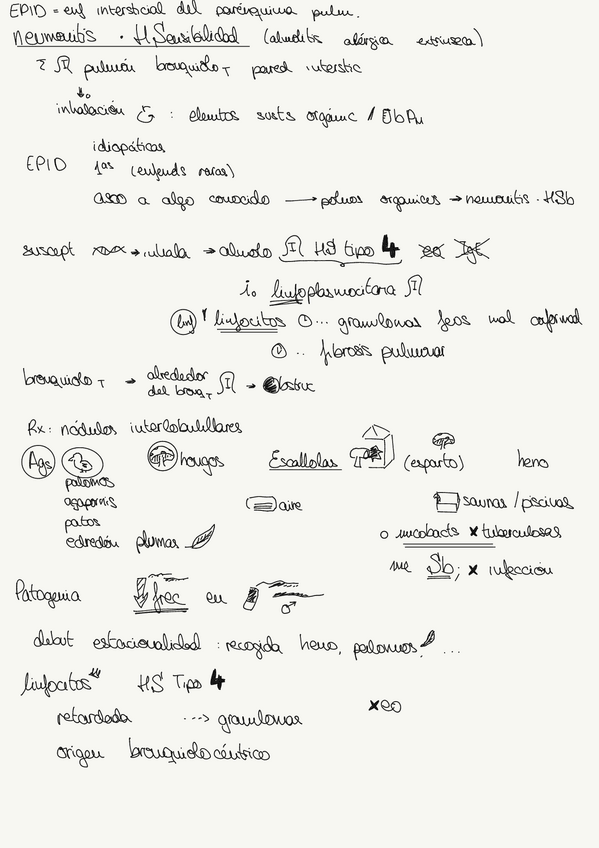 EPID = enf intersticial del parénquima pulm.
neumonitis · HSensibilidad (alveolitis alérgica extrínseca)
Σ pulmón bronquiolo T pared interstic
inhalación : elemtos susts orgánic /
idiopáticas
EPID 1as (enfends raras)
asoc a algo conocido → polvos organices → neumonitis · HSb
suscept → inhala → alveolo HS tipo 4 eo IgE
linfoplasmocitaria
linf linfocitos ... granulomas feos mal conformad
.. fibrosis pulmonar
bronquiolo T → alrededor del bronq T → Obstruc
Rx: nódulos interlobulillares
Ags hongos Escallolas (esparto) heno
palomos
agapornis aire saunas / piscinas
patos
edredón plumas o micobacts x tuberculosas
me Sb; x infección
Patogenia frec en
debut estacionalidad : recogida heno, palomos! ...
linfocitos HS Tipo 4
retardada ---> granulomas xeo
origen bronquiolo céntrico